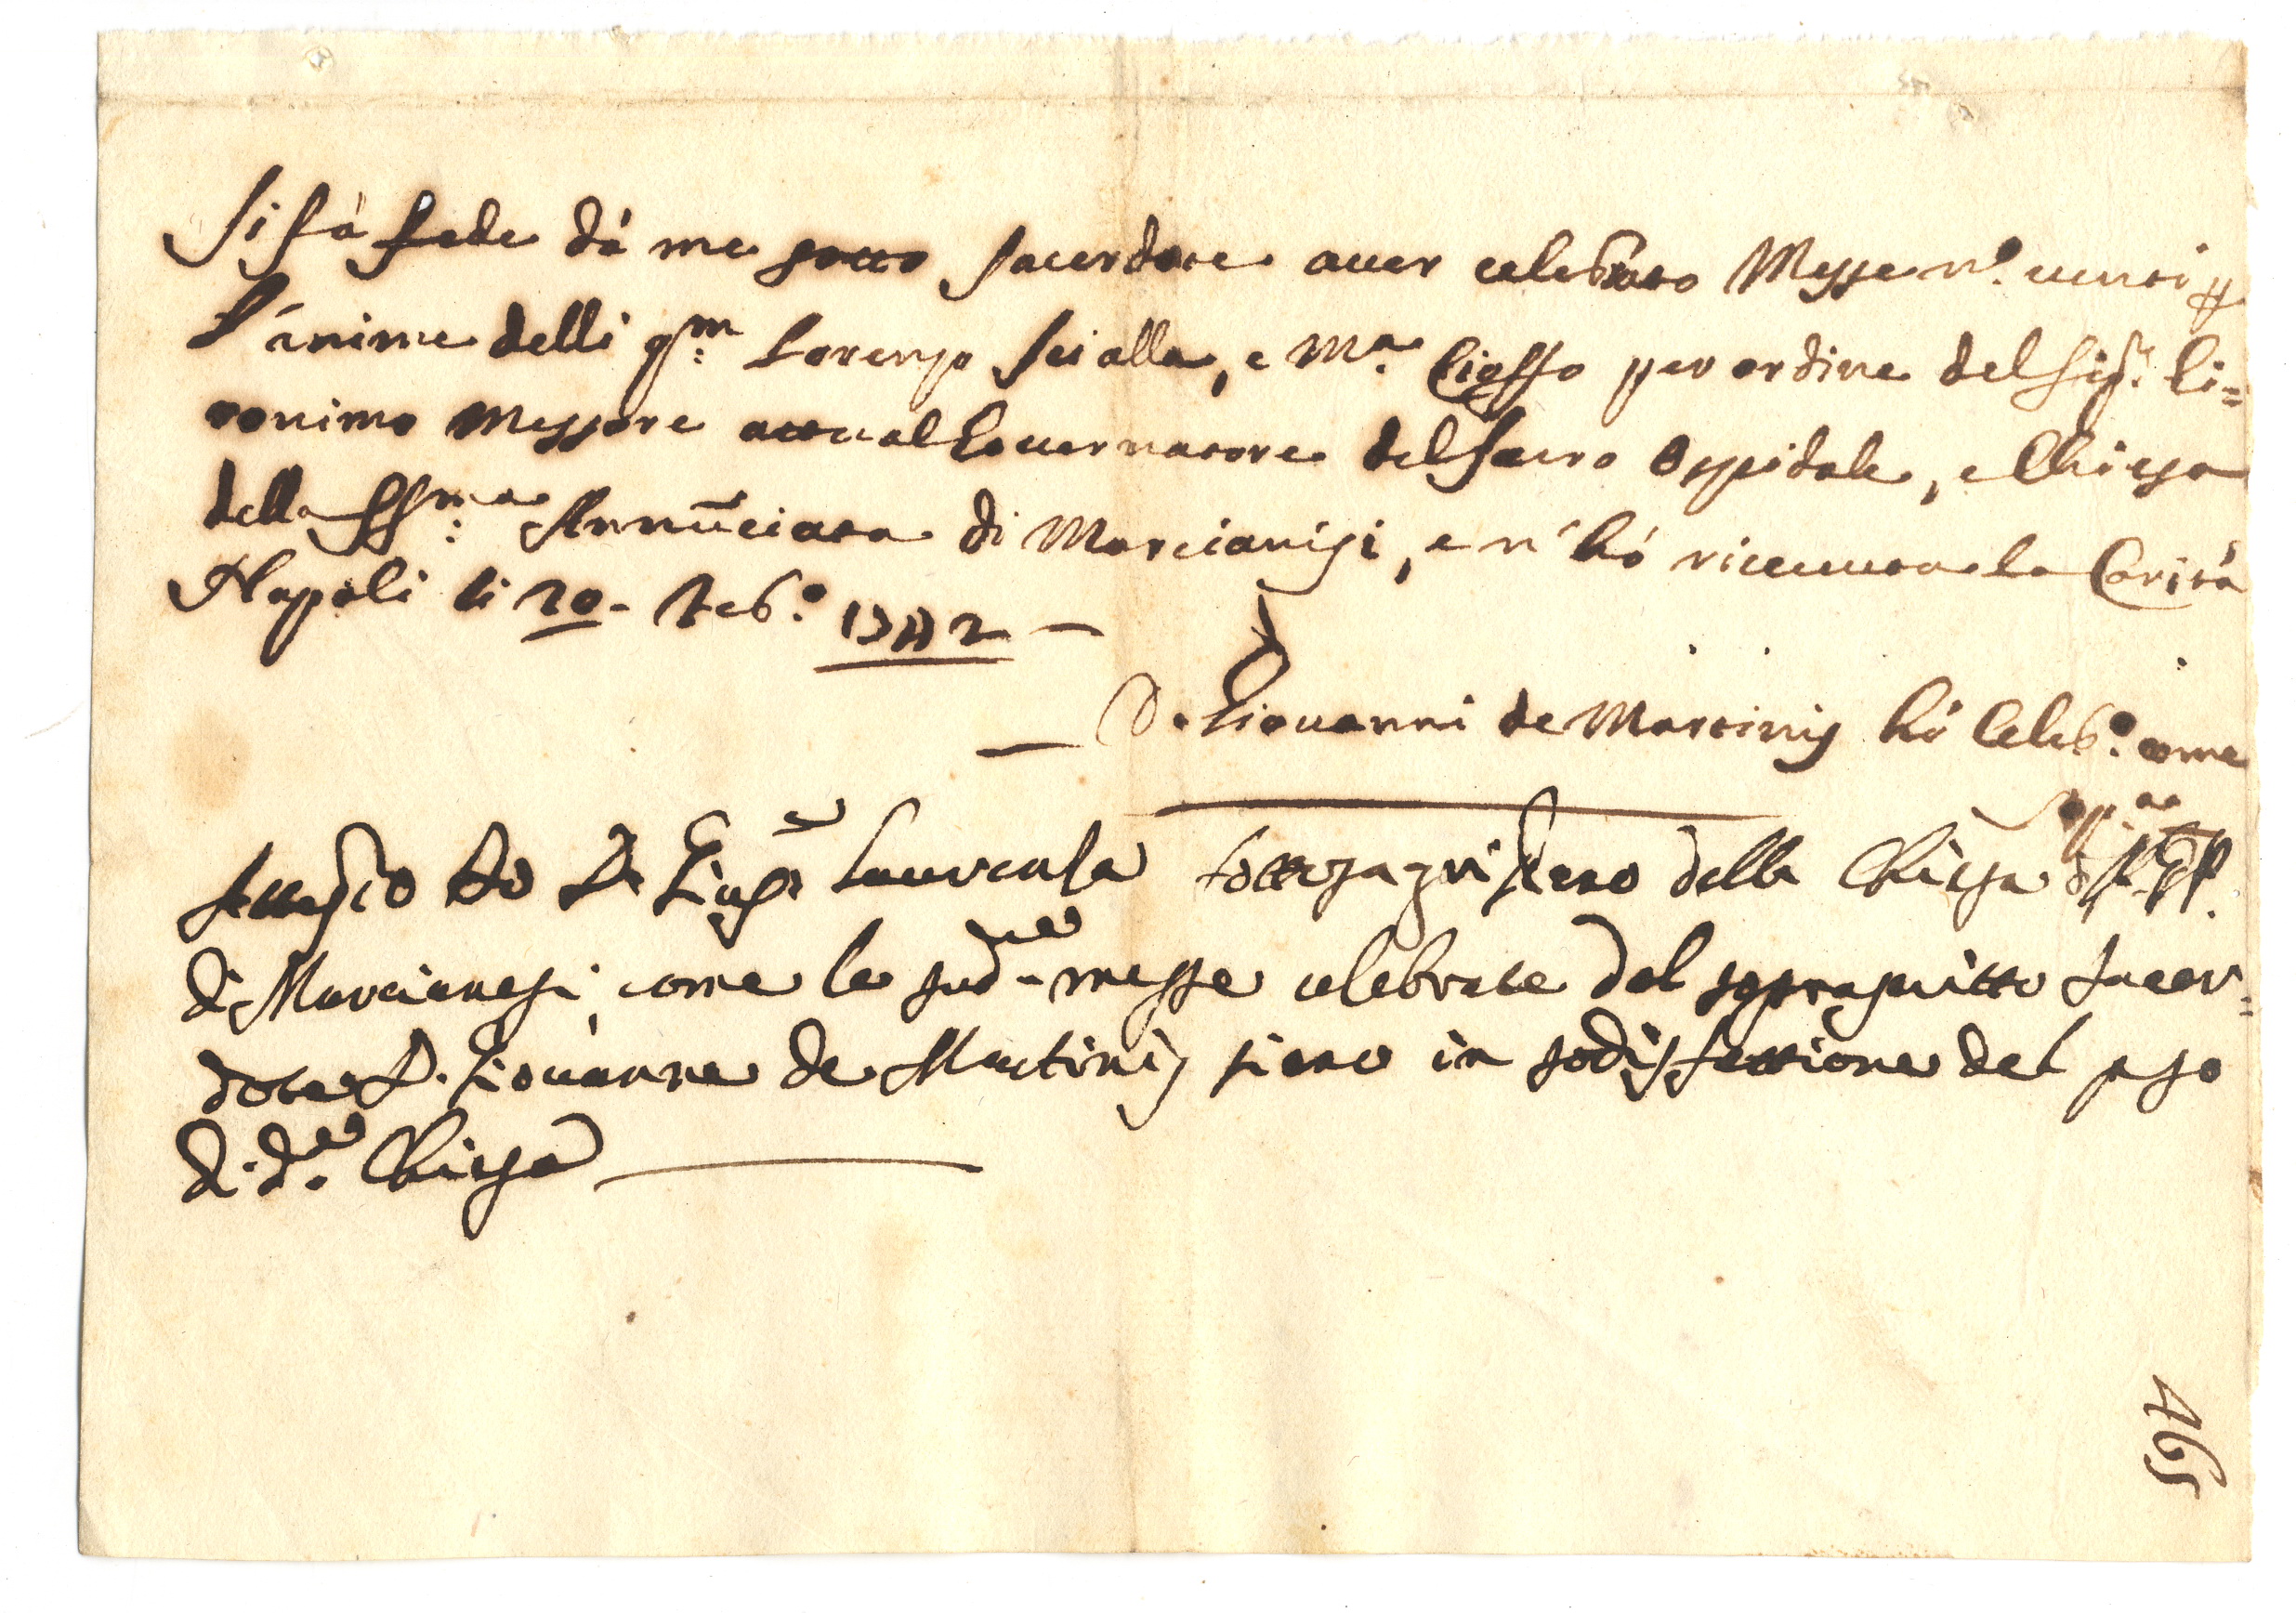 Si fà fede dà me sotto Sacerdote auer celebrato Messe n.º uenti p
l'anime delli qm: Lorenzo Scialla, e Mª. Cioffo per ordine del Sigr. Gi=
ronimo Messore attual Gouernatore del Sacro Ospidale, e Chiesa
della SSma: Annũciata di Marcianisi, e n'hó riceuuta la Carità
Napoli li 20. Feb.º
D. Giouanni de Martinis hò Celeb.º come
Sopra
Attesto Io D. Sottosagristano della Chiesa
di Marcianesi, come le sudte. messe celebrate dal soprascritto Sacer=
dote D. Giouanne de Martinis sieno in sodisfattione del peso
di dta. Chiesa
465